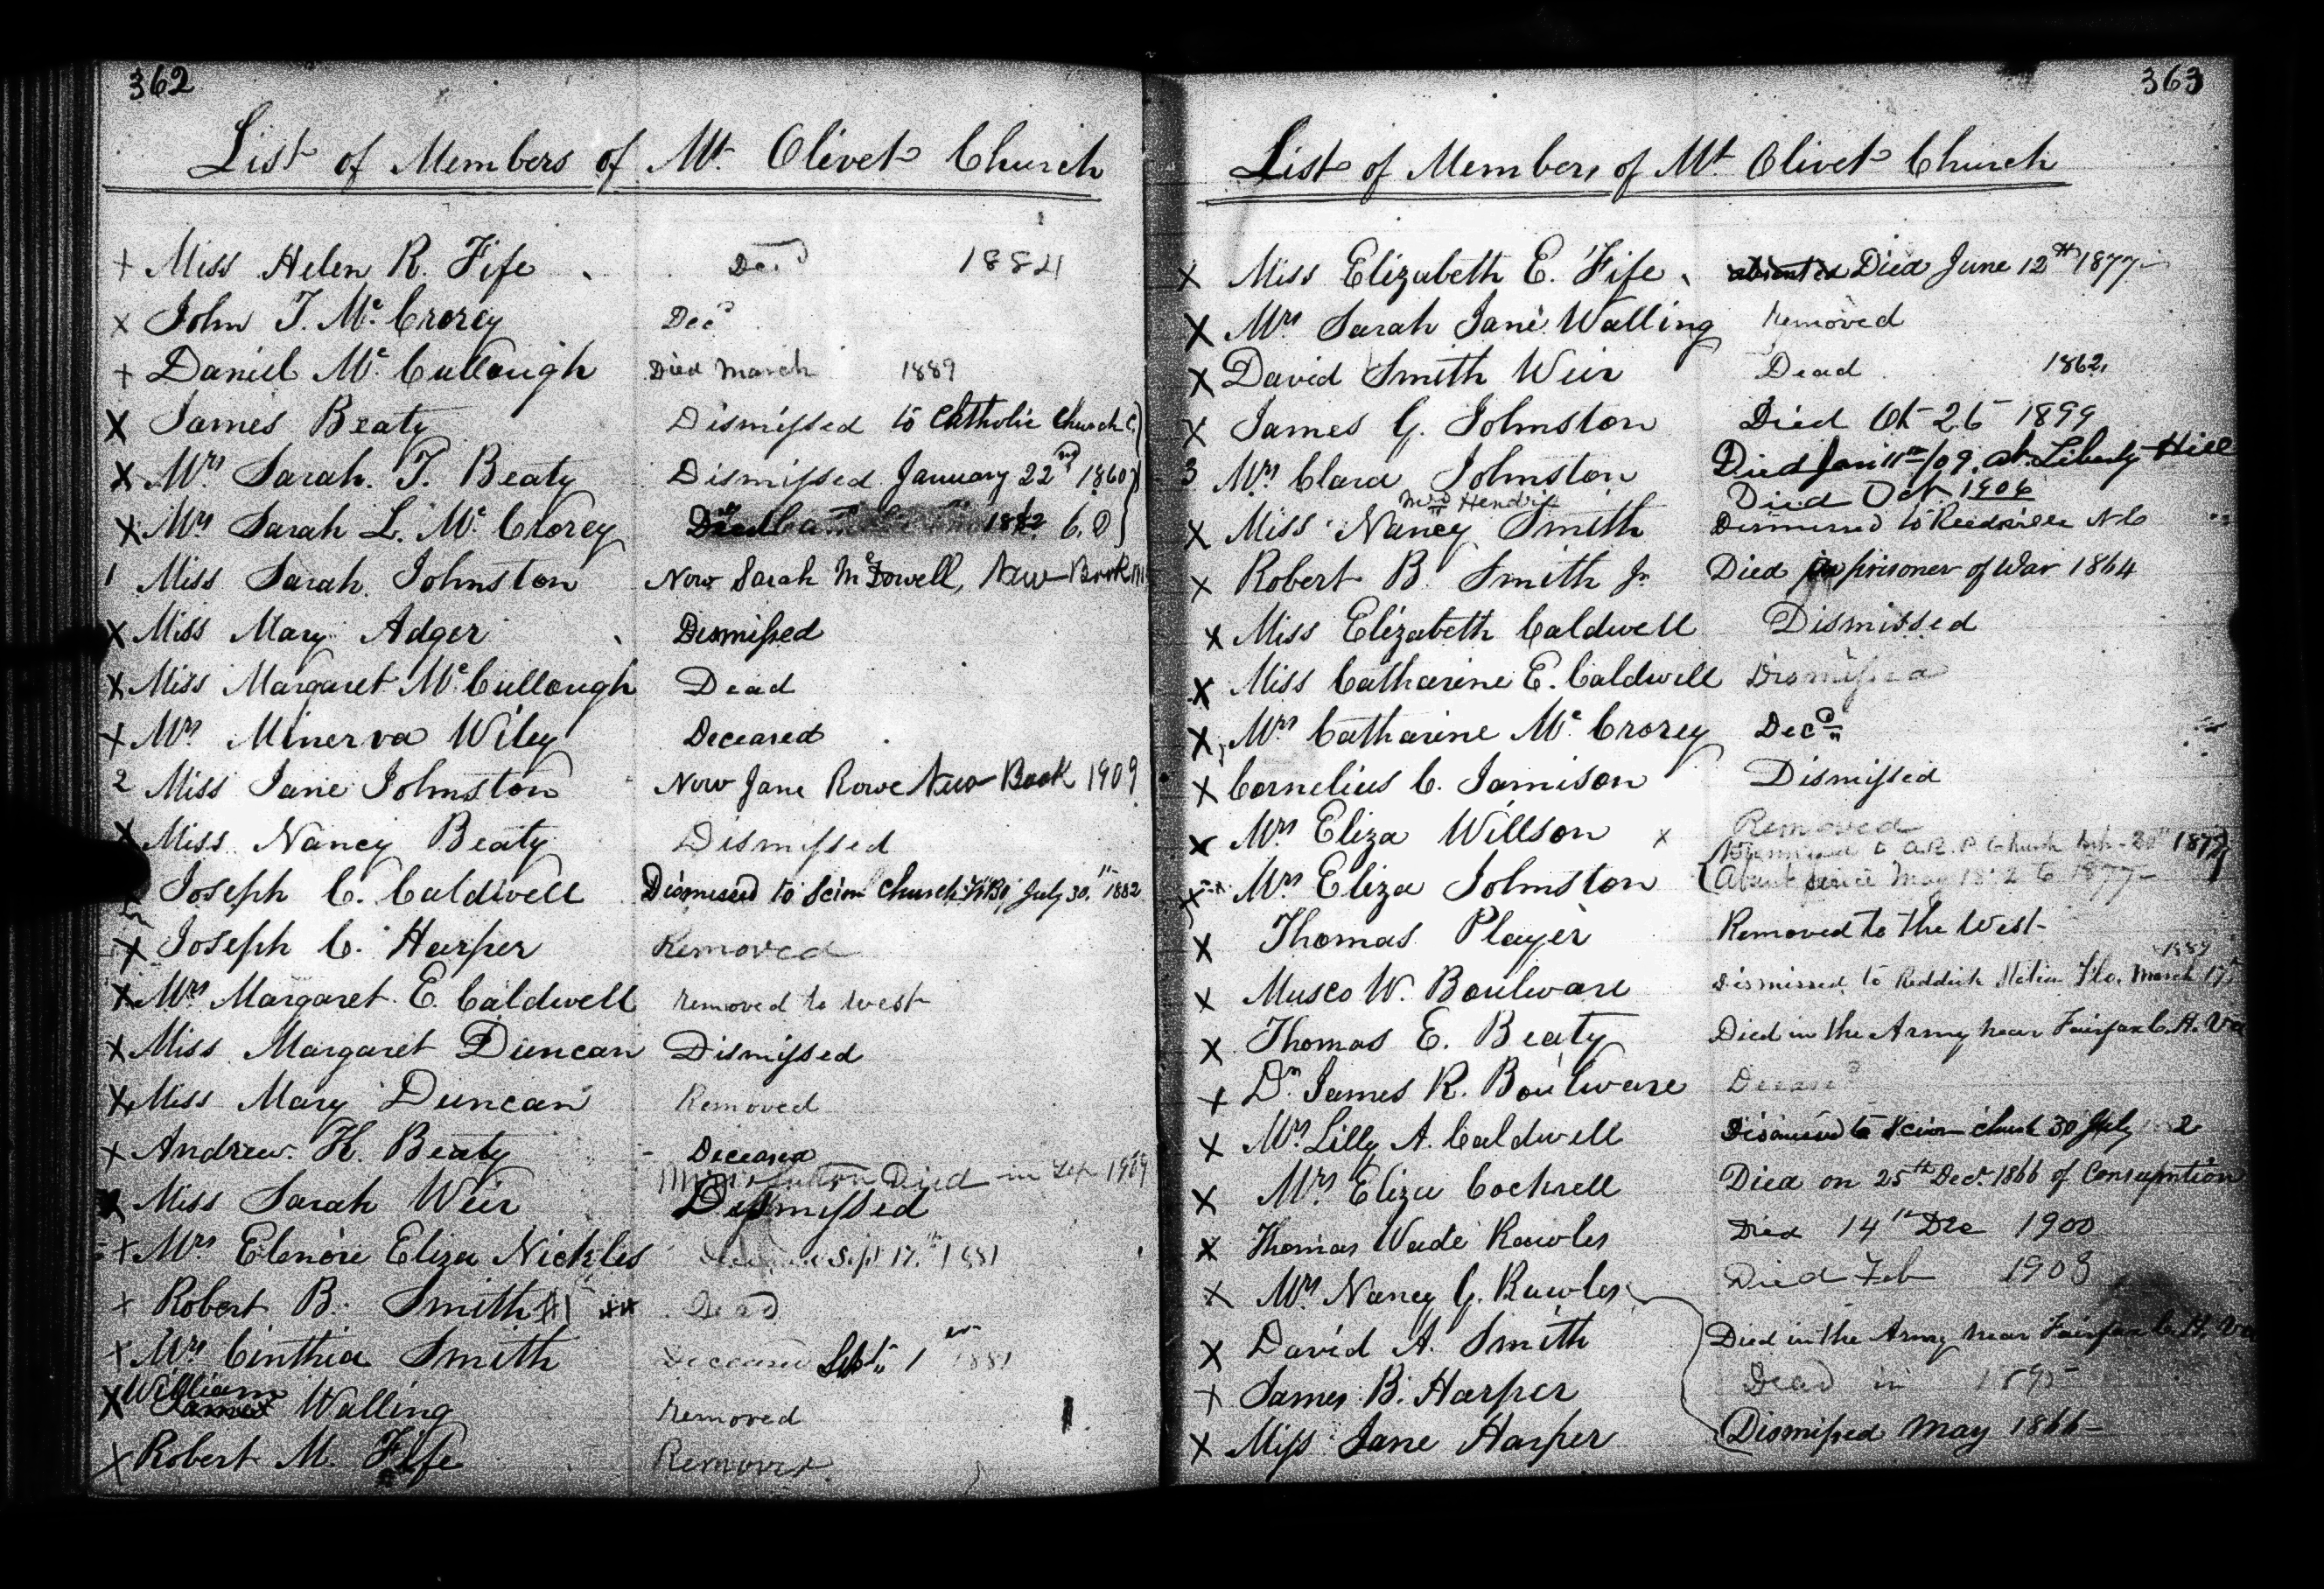 362
List of Members of Mt. Olivet Church
+ Miss Helen R. Fife Dec.d 1884
x John T. Mc.Crorey Decd
+ Daniel Mc.Cullough Died March 1889
X James Beaty Dismissed to Catholic Church
X Mrs Sarah. T. Beaty Dismissed January 22nd 1860
X Mrs Sarah L. Mc.Crorey Died
1 Miss Sarah. Johnston Now Sarah McDowell, New Book
X Miss Mary Adger Dismissed
X Miss Margaret Mc.Cullough Dead
X Mrs Minerva Wiley Deceased
2 Miss Jane Johnston Now Jane Rowe New Book 1909
X Miss Nancy Beaty Dismissed
Joseph C. Caldwell Dismissed to Scion Church July 30.th 1882
X Joseph C. Harper Removed
X Mrs Margaret E. Caldwell removed to West
X Miss Margaret Duncan Dismissed
X Miss Mary Duncan Removed
X Andrew. H. Beaty Deceased
Died in
Miss Sarah Weir Dismissed
X Mrs Elenore Eliza Nickles Sept 17.th 1881
x Robert B. Smith Dead
x Mrs Cinthia Smith Deceased Sept. 1 1881
William
X James Walling Removed
X Robert M. Fife Removed
363
List of Members of Mt Olivet Church
X Miss Elizabeth E. Fife Died June 12th 1877
X Mrs Sarah Jane Walling Removed
X David Smith Weir Dead 1862
X James G. Johnston Died Oct 26 1899
3 Mrs Clara Johnston Died Jan 11th/09. at Liberty Hill
Died Oct. 1906
X Miss Nancy Smith Dismissed to Reidsville N C
X Robert B. Smith Jr. Died prisoner of War 1864
X Miss Elizabeth Caldwell Dismissed
X Miss Catharine E. Caldwell Dismissed
X Mrs Catharine Mc.Crorey Decd
X Cornelius C. Jamison Dismissed
X Mrs Eliza Willson x Removed
Dismissed to A.R.P. Church
X Mrs Eliza Johnston Absent since May to 1877
X Thomas Player Removed to the West
1889
X Musco W. Boulware Dismissed to Reddick Flo. March 17th
X Thomas E. Beaty Died in the Army near Fairfax C.H. Va
X Dr. James R. Boulware Deceasd
X Mrs Lilly A. Caldwell Dismissed to Scion church 30 July
X Mrs Eliza Cockrell Died on 25th Dec. 1866 of Consumption
X Thomas Wade Rawles Died 14th Dec 1900
X Mrs Nancy G. Rawles Died Feb 1903
X David A. Smith Died in the Army near Fairfax C.H. Va
X James B. Harper Dead in 1895
X Miss Jane Harper Dismissed May 1866